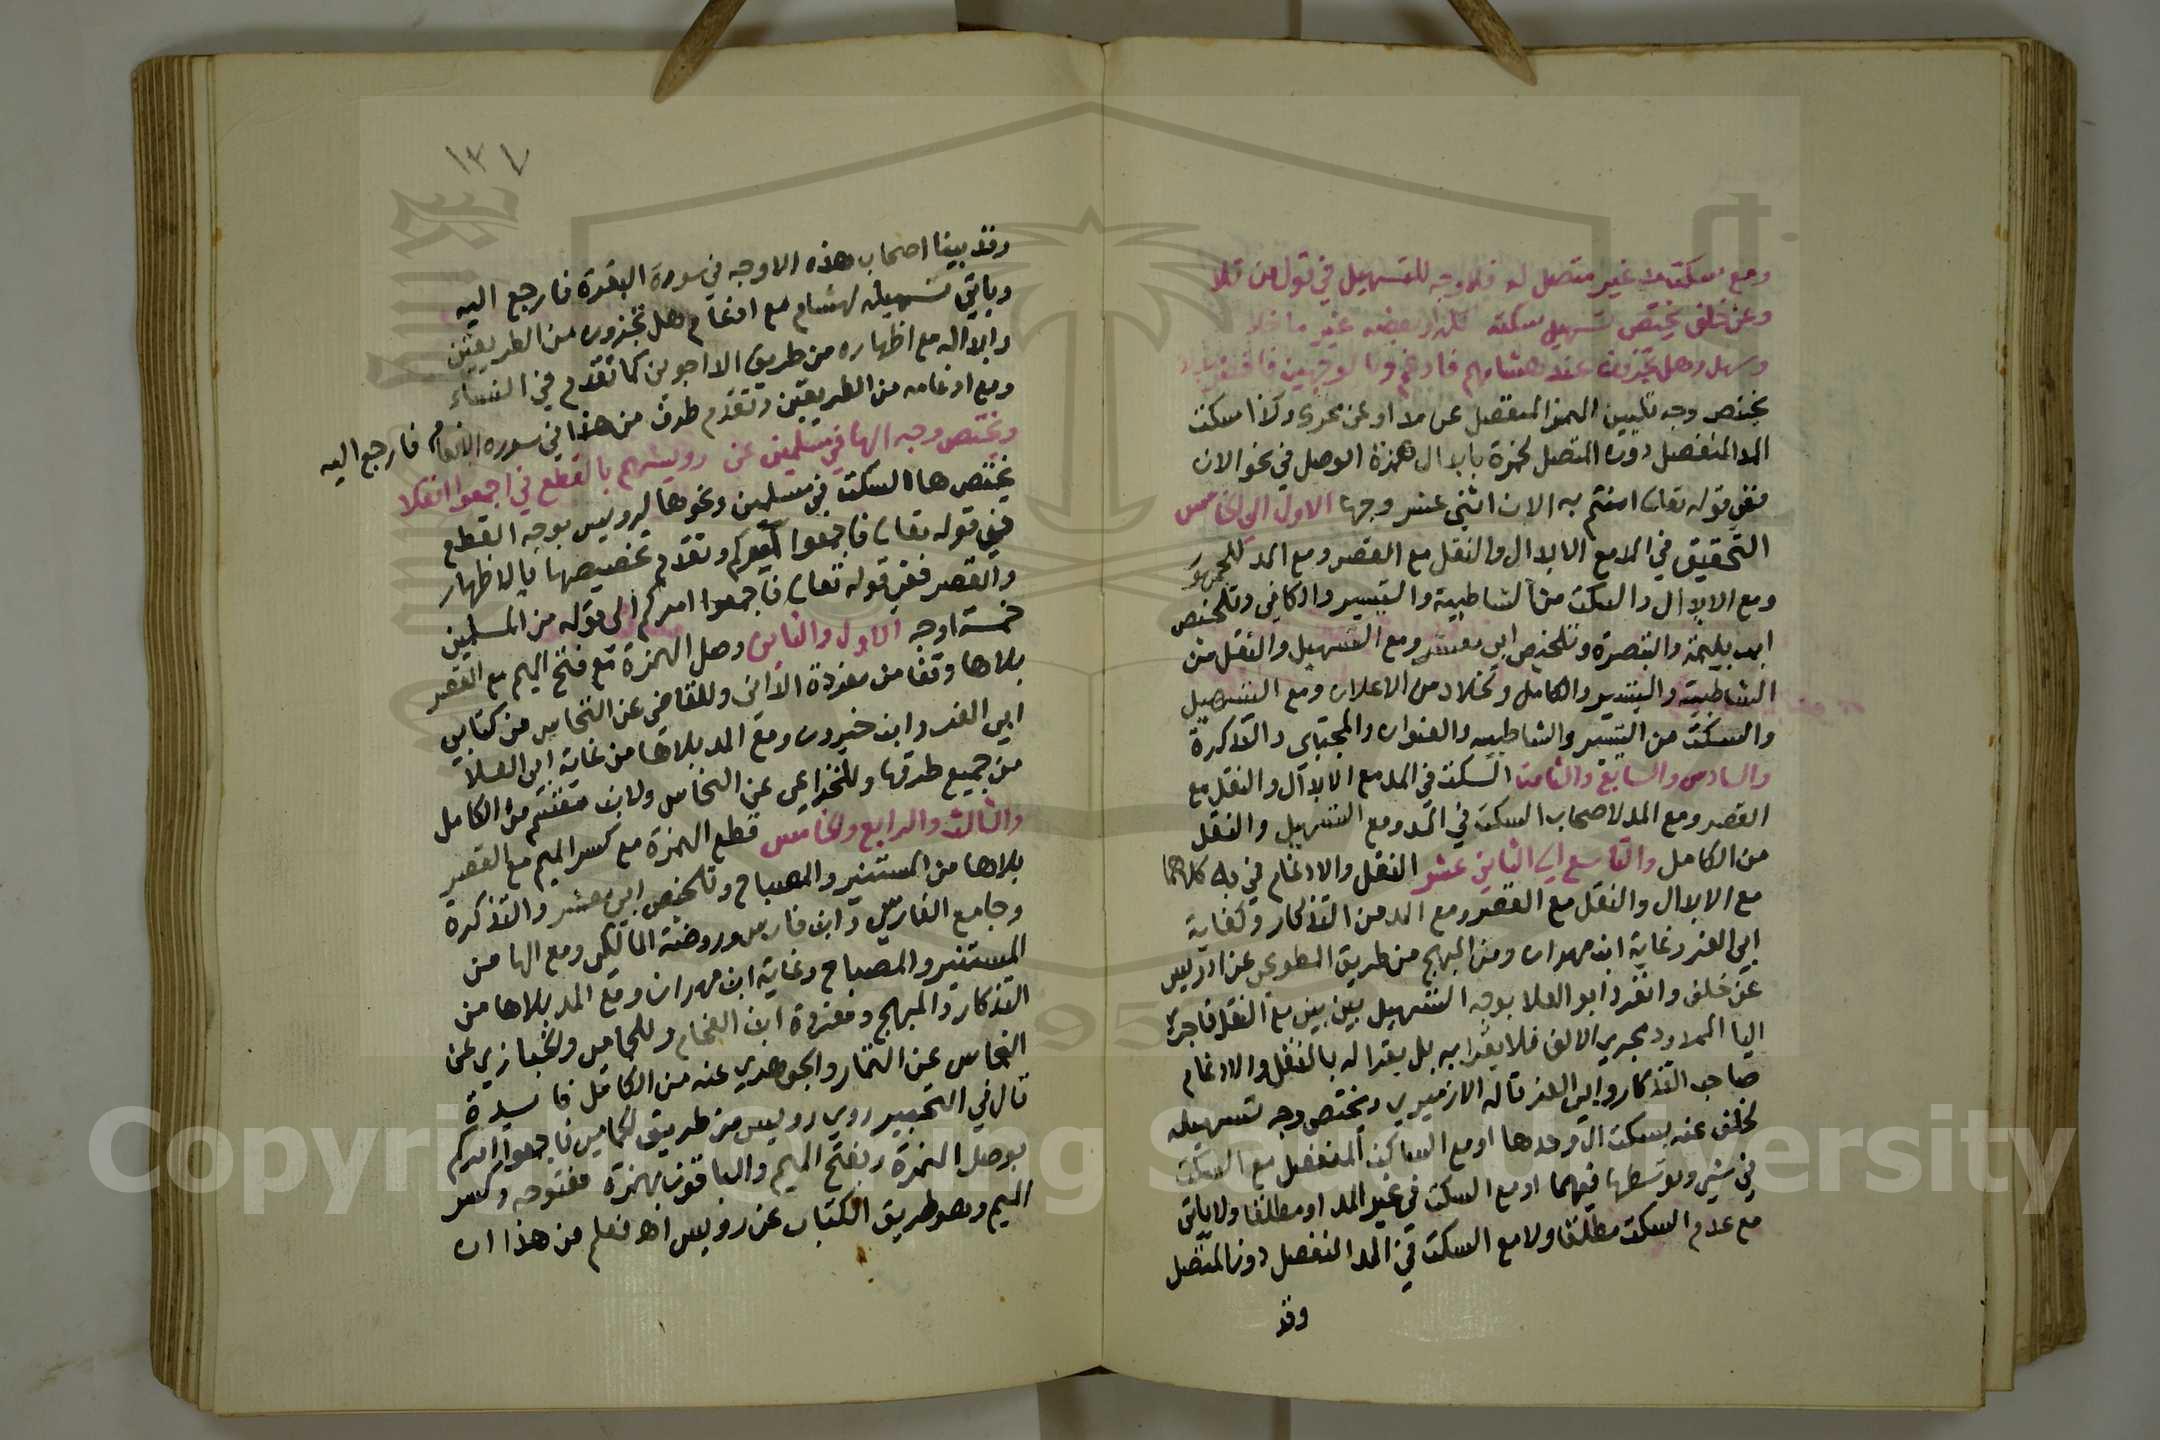 ومع سكت مد غير متصل له فلا وجه للتسهيل في قول من تلا
وعن خلف يختص تسهيل سكته غير ما خلا
وسهل وهل تجزون عند هشامهم فادغم وبالوجهين فاقرأ
يختص وجه تليين الهمز المنفصل عن مد او عن محرى وكذا سكت
المد المنفصل دون المتصل لحمزة بابدال همزة الوصل في نحو الان
ففي قوله تعالى امنتم به الان اثنى عشر وجها الاول الى الخامس
التحقيق في المد مع الابدال والنقل مع القصر ومع المد للجمهور
ومع الابدال والسكت من الشاطبية والتيسير والكافي وتلخيص
ابن بليمة والتبصرة وتلخيص ابي معشر ومع التسهيل والنقل من
الشاطبية والتيسير والكامل وخلاد من الاعلان ومع التسهيل
والسكت من التيسير والشاطبيه والعنوان والمجتبى والتذكرة
والسادس والسابع والثامن السكت في المد مع الابدال والنقل مع
القصر ومع المد لاصحاب السكت في المد ومع التسهيل والنقل
من الكامل والتاسع الى الثاني عشر النقل والادغام في به كلاهما
مع الابدال والنقل مع القصر ومع المد من التذكار وكفاية
ابي العز وغاية ابن مهران ومن المبهج من طريق المطوعي عن ادريس
عن خلف وانفرد ابو العلا بوجه التسهيل بين بين مع النقل فاجرى
اليا المدود مجرى الالف فلا يقرا به بل يقرا له بالنقل والادغام
صاحب التذكار وابي العز قاله الازميري ويختص وجه تسهيله
لخلف عنه بسكت ال وحدها او مع الساكن المنفصل مع السكت
في شي وتوسطها فيهما او مع السكت في غير المد او مطلقا ولا ياتي
مع عدم السكت مطلقا ولا مع السكت في المد المنفصل دون المتصل
وقد
١٣٧
وقد بينا اصحاب هذه الاوجه في سورة البقرة فارجع اليه
وياتي تسهيله لهشام مع ادغام هل تجزون من الطريقين
وابداله مع اظهاره من طريق الداجوني كما تقدم في النساء
ومع ادغامه من الطريقين وتقدم طرف من هذا في سورة الانعام فارجع اليه
ويختص وجه الها في مسلمين عن رويسهم بالقطع في اجمعوا انقلا
تختص ها السكت في مسلمين ونحوها لرويس بوجه القطع
في قوله تعالى فاجمعوا كيدكم وتقدم تخصيصها بالاظهار
والقصر ففي قوله تعالى فاجمعوا امركم الى قوله من المسلمين
خمسة اوجه الاول والثاني وصل الهمزة مع فتح الميم مع القصر
بلا ها وقفا من مفردة الداني وللقاضي عن النخاس من كتابي
ابي العز وابن خيرون ومع المد بلا ها من غاية ابي العلا
من جميع طرقها وللخزاعي عن النخاس ولابن مقسم من الكامل
والثالث والرابع والخامس قطع الهمزة مع كسر الميم مع القصر
بلا ها من المستنير والمصباح وتلخيص ابي معشر والتذكرة
وجامع الفارسي وابن فارس وروضة المالكي ومع الها من
المستنير والمصباح وغاية ابن مهران ومع المد بلا ها من
التذكار والمبهج ومفردة ابن الفحام وللحمامي والخبازي عن
النخاس عن التمار والجوهري عنه من الكامل فايدة
قال في التحبير روى رويس من طريق الحمامي فاجمعوا امركم
بوصل الهمزة وفتح الميم والباقون بهمزة مفتوحه وكسر
الميم وهو طريق الكتاب عن رويس اهـ فعلم من هذا ان
Copyright © King Saud University